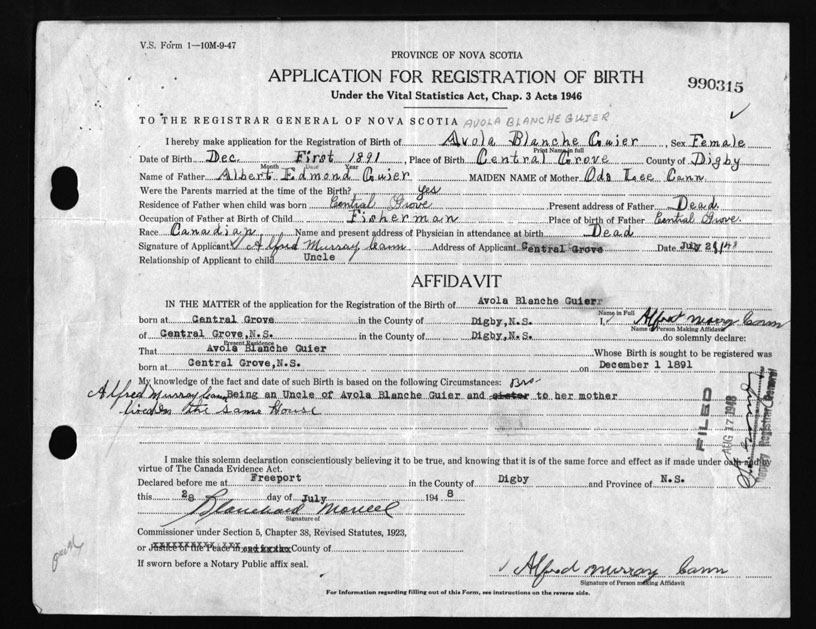 V.S. Form 1—10M-9-47
PROVINCE OF NOVA SCOTIA
APPLICATION FOR REGISTRATION OF BIRTH
990315
Under the Vital Statistics Act, Chap. 3 Acts 1946
TO THE REGISTRAR GENERAL OF NOVA SCOTIA AVOLA BLANCHE GUIER
I hereby make application for the Registration of Birth of Avola Blanche Guier, Sex Female
Print Name in full
Date of Birth Dec. First 1891, Place of Birth Central Grove County of Digby
Month Date Year
Name of Father Albert Edmond Guier MAIDEN NAME of Mother Oda Lee Cann
Were the Parents married at the time of Birth? yes
Residence of Father when child was born Central Grove Present address of Father Dead
Occupation of Father at Birth of Child Fisherman Place of birth of Father Central Grove.
Race Canadian Name and present address of Physician in attendance at birth Dead
Signature of Applicant Alford Murray Cann Address of Applicant Central Grove Date July 28/48
Relationship of Applicant to child Uncle
AFFIDAVIT
IN THE MATTER of the application for the Registration of the Birth of Avola Blanche Guier
Name in Full
born at Central Grove in the County of Digby,N.S. I, Alfred Murray Cann
Name of Person Making Affidavit
of Central Grove,N.S. in the County of Digby,N.S. do solemnly declare:
Present Residence
That Avola Blanche Guier Whose Birth is sought to be registered was
born at Central Grove,N.S. on December 1 1891
My knowledge of the fact and date of such Birth is based on the following Circumstances: Bro-
Alfred Murray Cann Being an Uncle of Avola Blanche Guier and sister to her mother
lived in the same House
FILED
AUG 17 1948
Deputy Registrar General
I make this solemn declaration conscientiously believing it to be true, and knowing that it is of the same force and effect as if made under oath and by
virtue of The Canada Evidence Act.
Declared before me at Freeport in the County of Digby and Province of N.S.
this 28 day of July 1948
Blanchard
Signature of
Commissioner under Section 5, Chapter 38, Revised Statutes, 1923,
or Justice of the Peace in and for the County of
If sworn before a Notary Public affix seal.
Alfred Murray Cann
Signature of Person making Affidavit
For Information regarding filling out of this Form, see instructions on the reverse side.